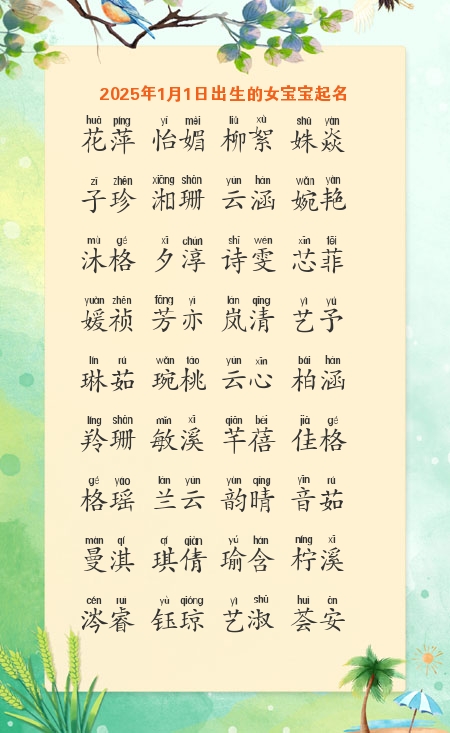 2025年1月1日出生的女宝宝起名
huā píng yí mèi liǔ xù shū yàn
花萍 怡媚 柳絮 姝焱
zǐ zhēn xiāng shān yún hán wǎn yàn
子珍 湘珊 云涵 婉艳
mù gé xī chún shī wén xīn fēi
沐格 夕淳 诗雯 芯菲
yuàn zhēn fāng yì lán qīng yì yú
媛祯 芳亦 岚清 艺予
lín rú wǎn táo yún xīn bǎi hán
琳茹 琬桃 云心 柏涵
líng shān mǐn xī qiān bèi jiā gé
羚珊 敏溪 芊蓓 佳格
gé yáo lán yún yùn qíng yīn rú
格瑶 兰云 韵晴 音茹
màn qí qí qiàn yú hán níng xī
曼淇 琪倩 瑜含 柠溪
cén ruì yù qióng yì shū huì ān
涔睿 钰琼 艺淑 荟安